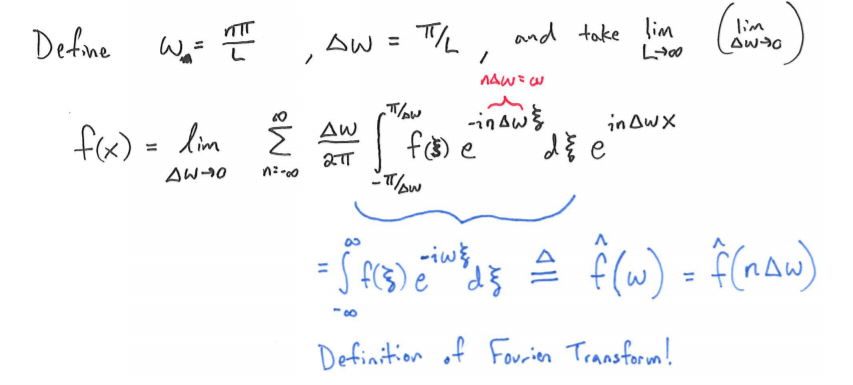 Define ωₙ = nπ/L , Δω = π/L , and take lim L→∞ (lim Δω→0)
nΔω = ω
f(x) = lim Δω→0 ∑ n=-∞ ∞ Δω/2π ∫ -π/Δω π/Δω f(ξ) e^(-inΔωξ) dξ e^(inΔωx)
= ∫ -∞ ∞ f(ξ) e^(-iωξ) dξ ≜ f̂(ω) = f̂(nΔω)
Definition of Fourier Transform!